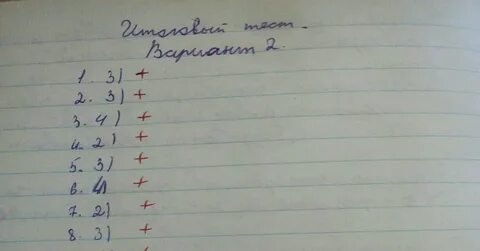 Итоговый тест.
Вариант 2.
1. 3) +
2. 3) +
3. 4) +
4. 2) +
5. 3) +
6. 4) +
7. 2) +
8. 3) +